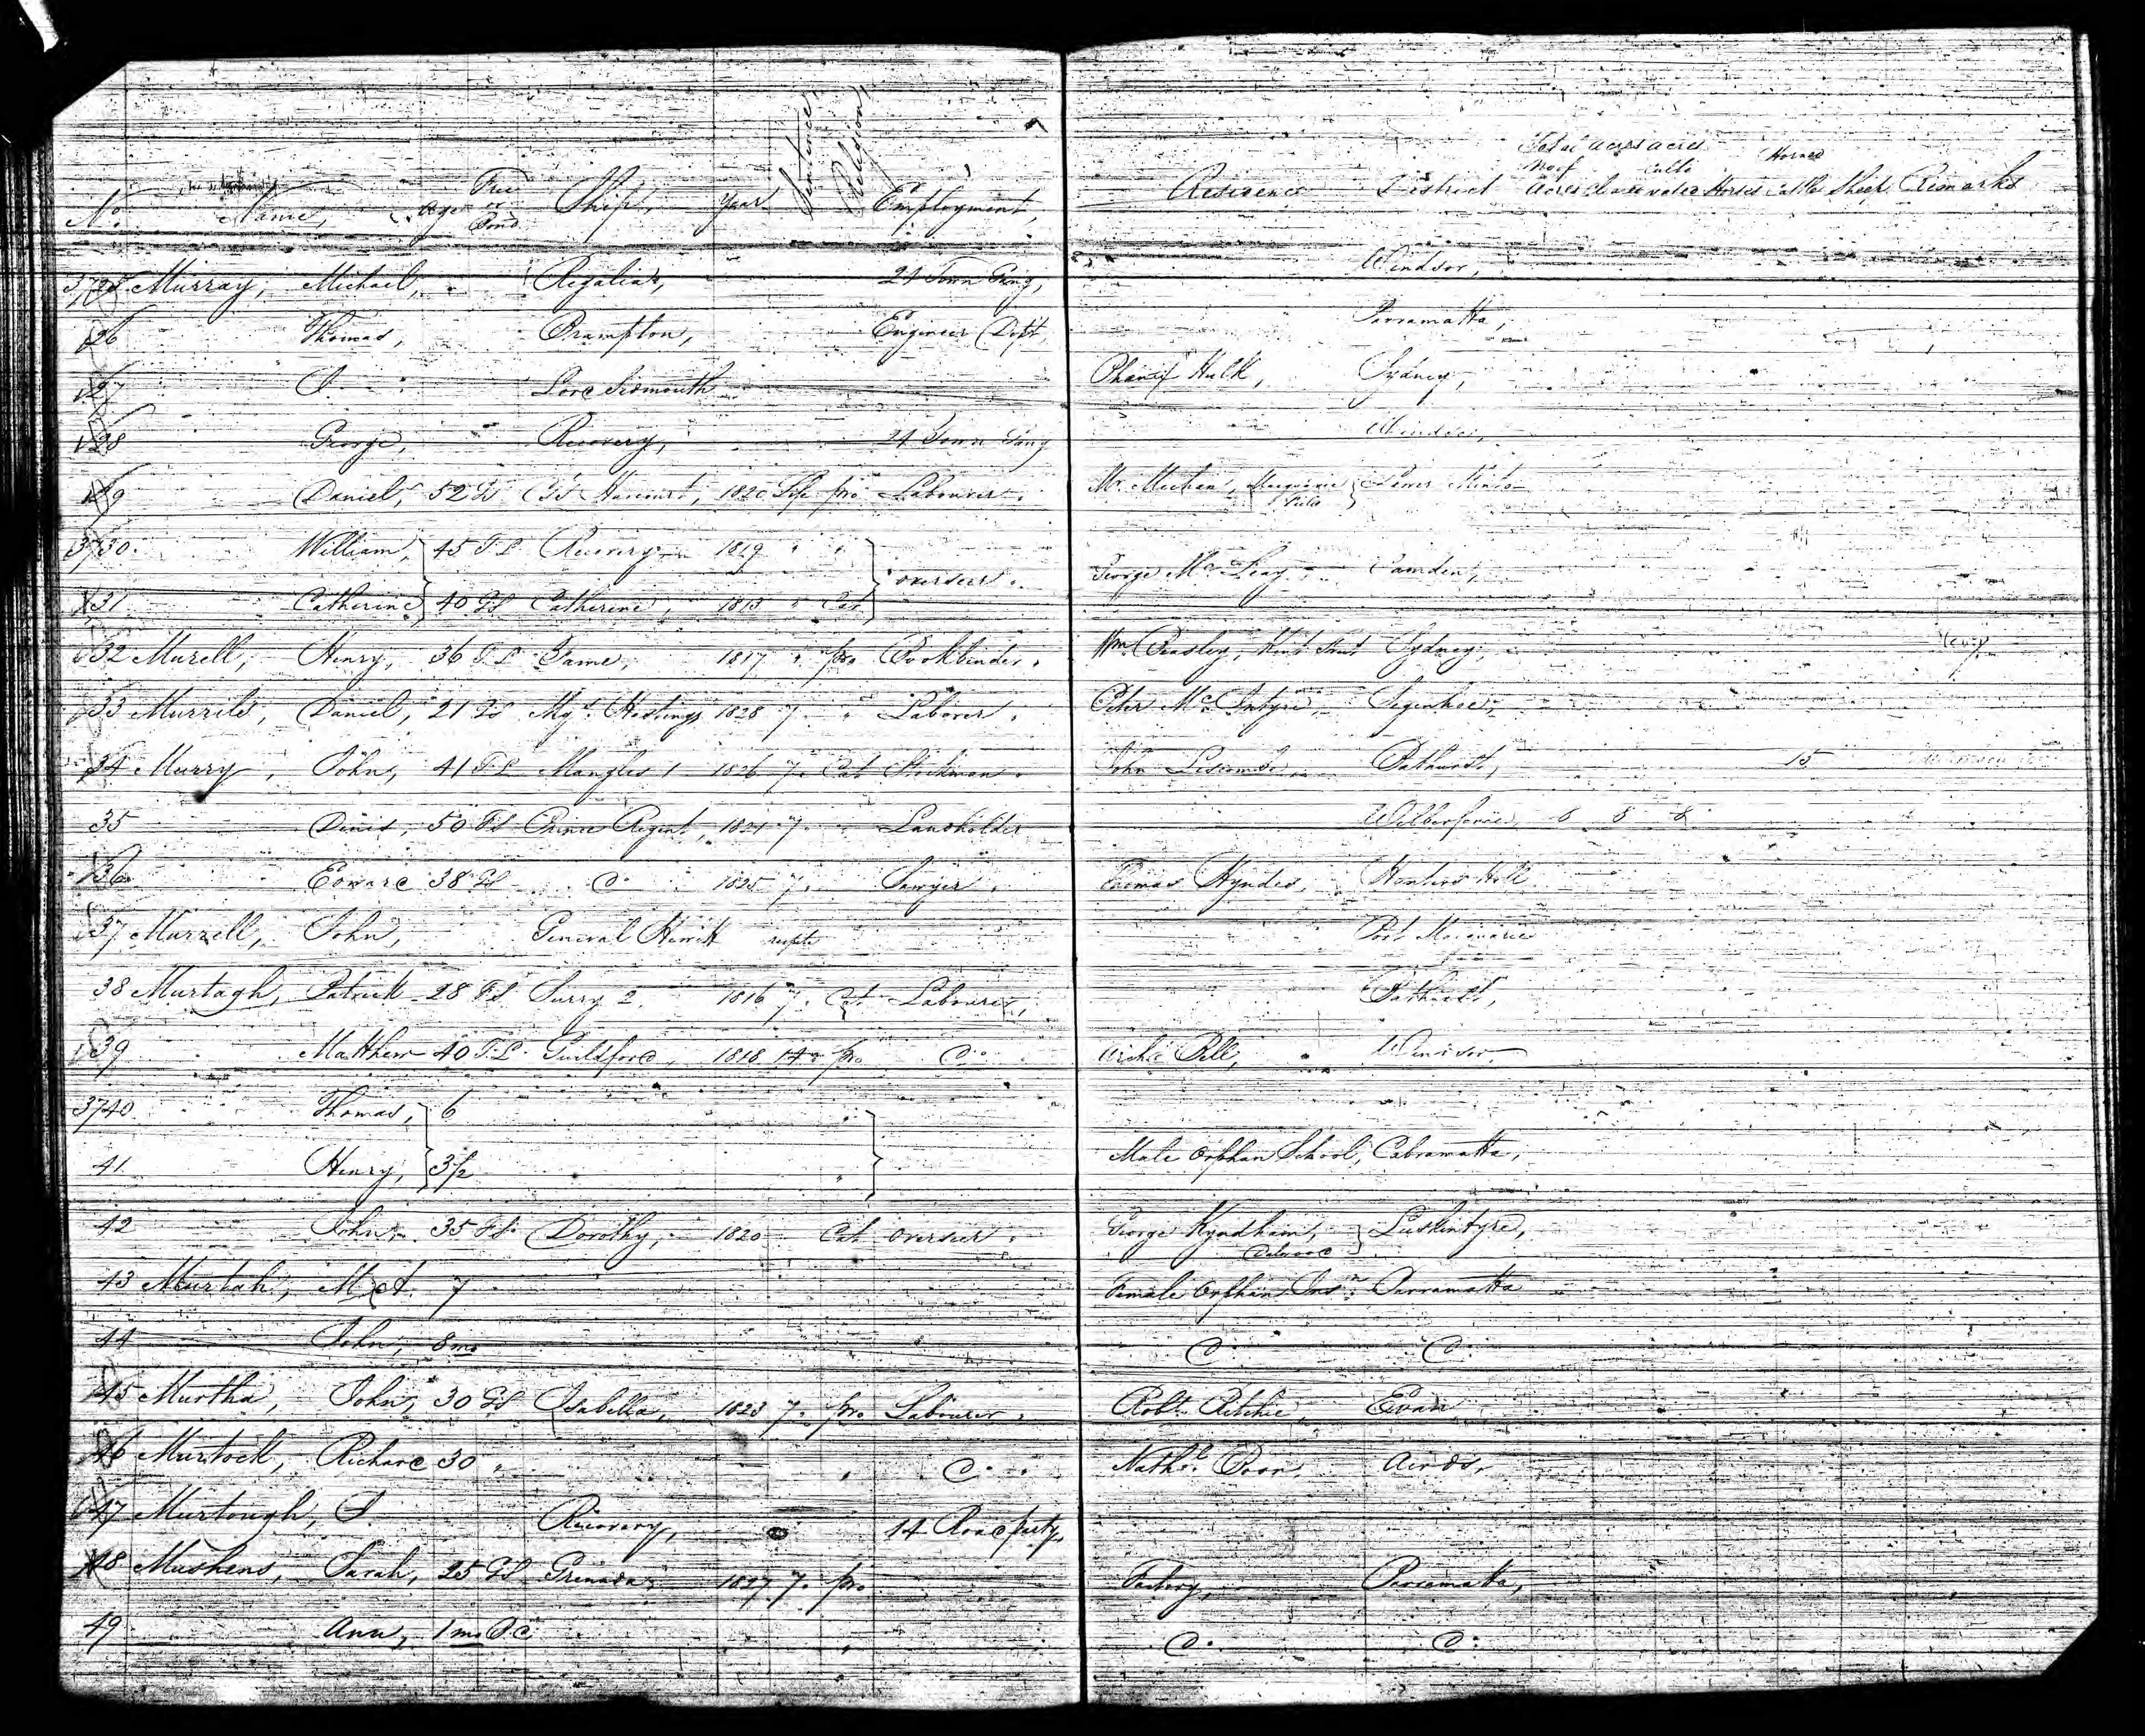 No. Name, Age Free or Bond Ship, Year Sentence, Religion, Employment, Residence District Total No of Acres acres Cleared acres Cultivated Horses Horned Cattle Sheep Remarks
3725 Murray, Michael, Regalia, 24 Town Gang, Windsor,
26 Thomas, Brampton, Engineer Dept Parramatta,
27 J. Lord Sidmouth Phœnix Hulk, Sydney,
28 George, Recovery, 24 Town Gang Windsor,
29 Daniel, 52 GS Cs Harcourt, 1820 Life pro Labourer. Mr. Meehan, Macquarie Field } Lower Minto
3730. William, } 45 T.L Recovery 1819 " " } overseer. George McLeay, Camden,
31 Catherine } 40 FS Catherine, 1813 " Cat }
32 Murell, Henry, 36 T.L Fame, 1817 " pro Bookbinder. Wm. Beasley, Kent Street Sydney,
33 Murrils, Daniel, 21 GS Mqs. Hastings 1828 7. " Laborer. Peter McIntyre, Segenhoe,
34 Murry, John, 41 T.L Mangles 1 1826 7. Cat Stockman. John Liscombe, Bathurst, 15
35 Dinis, 50 FS Prince Regent, 1821 7. " Landholder Wilberforce, 8 8 8
36. Edward 38 GS Do. 1825 7. Sawyer. Thomas Hyndes, Hunters Hill
37 Murzell, John, General Hewitt Port Macquarie
38 Murtagh, Patrick 28 FS Surry 2. 1816 7. Cat Labourer, Bathurst,
39 Matthew 40 T.L. Guildford, 1818 14 pro Do. Archd Bell, Windsor,
3740 Thomas, } 6 " } Male Orphan School, Cabramatta,
41 Henry, } 3½ " }
42 John, 35 FS. Dorothy, 1820 Cat overseer. George Wyndham, Dalwood } Luskintyre,
43 Murtah, M A 7 Female Orphan Insn. Parramatta
44 John, 8 mo " Do. Do.
45 Murtha, John, 30 GS Isabella, 1823 7. pro. Labourer. Robt. Ritchie Evan
46 Murtock, Richard 30 " " Do. Nathl. Boon, Airds,
47 Murtough, J. Recovery, 14 Road party,
48 Mushens, Sarah, 25 GS Grenada 1827 7. pro Factory, Parramatta,
49 Ann, 1 mo B.C. " Do. Do.